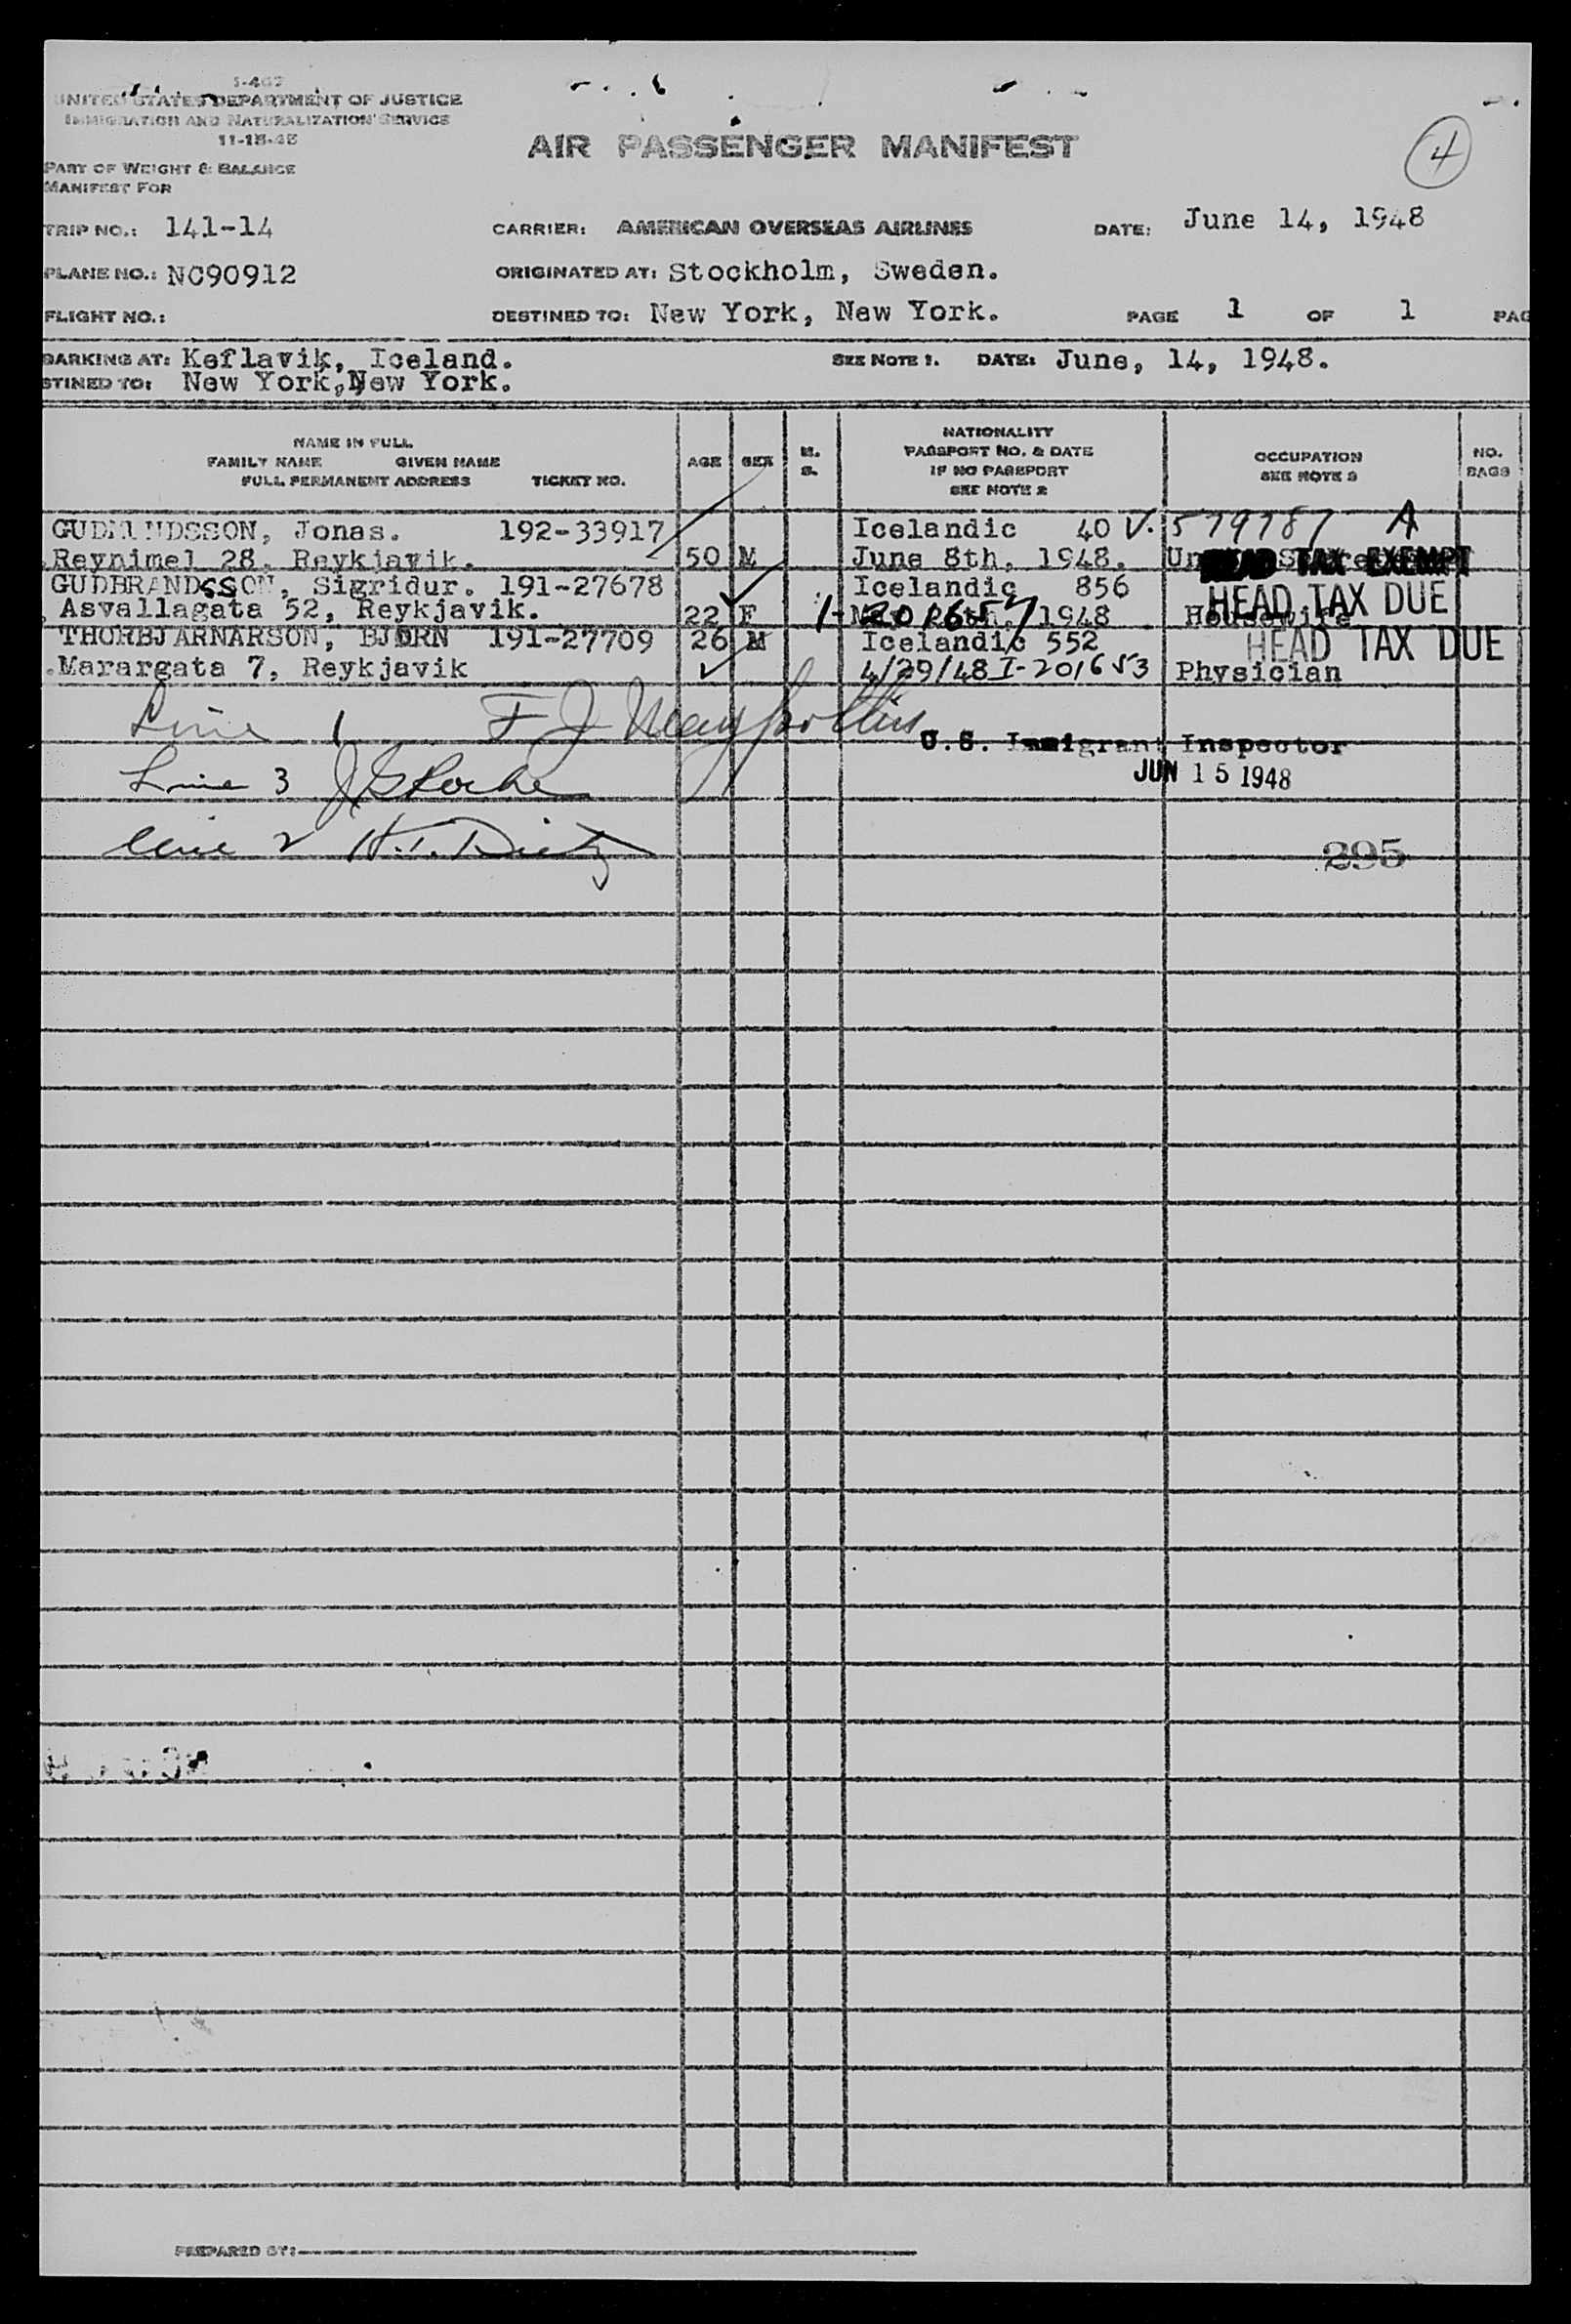 I-467
UNITED STATES DEPARTMENT OF JUSTICE
IMMIGRATION AND NATURALIZATION SERVICE
11-18-45
AIR PASSENGER MANIFEST
4
PART OF WEIGHT & BALANCE
MANIFEST FOR
TRIP NO.: 141-14 CARRIER: AMERICAN OVERSEAS AIRLINES DATE: June 14, 1948
PLANE NO.: NC90912 ORIGINATED AT: Stockholm, Sweden.
FLIGHT NO.: DESTINED TO: New York, New York. PAGE 1 OF 1 PAG
BARKING AT: Keflavik, Iceland. SEE NOTE 1. DATE: June, 14, 1948.
STINED TO: New York, New York.
NAME IN FULL
FAMILY NAME GIVEN NAME
FULL PERMANENT ADDRESS TICKET NO.
AGE
SEX
M.
S.
NATIONALITY
PASSPORT NO. & DATE
IF NO PASSPORT
SEE NOTE 2
OCCUPATION
SEE NOTE 3
NO.
BAGS
GUDMUNDSSON, Jonas. 192-33917 Icelandic 40 V. 579787 A
Reynimel 28, Reykjavik. 50 M June 8th, 1948. TAX EXEMPT
GUDBRANDSSON, Sigridur. 191-27678 Icelandic 856 HEAD TAX DUE
Asvallagata 52, Reykjavik. 22 F 1948 Housewife
THORBJARNARSON, BJORN 191-27709 26 M Icelandic 552 HEAD TAX DUE
Marargata 7, Reykjavik 4/29/48 I-201653 Physician
Line 1 F J
U.S. Immigrant Inspector
Line 3 J Roche
JUN 15 1948
Line 2 H.T. Dietz
295
PREPARED BY: